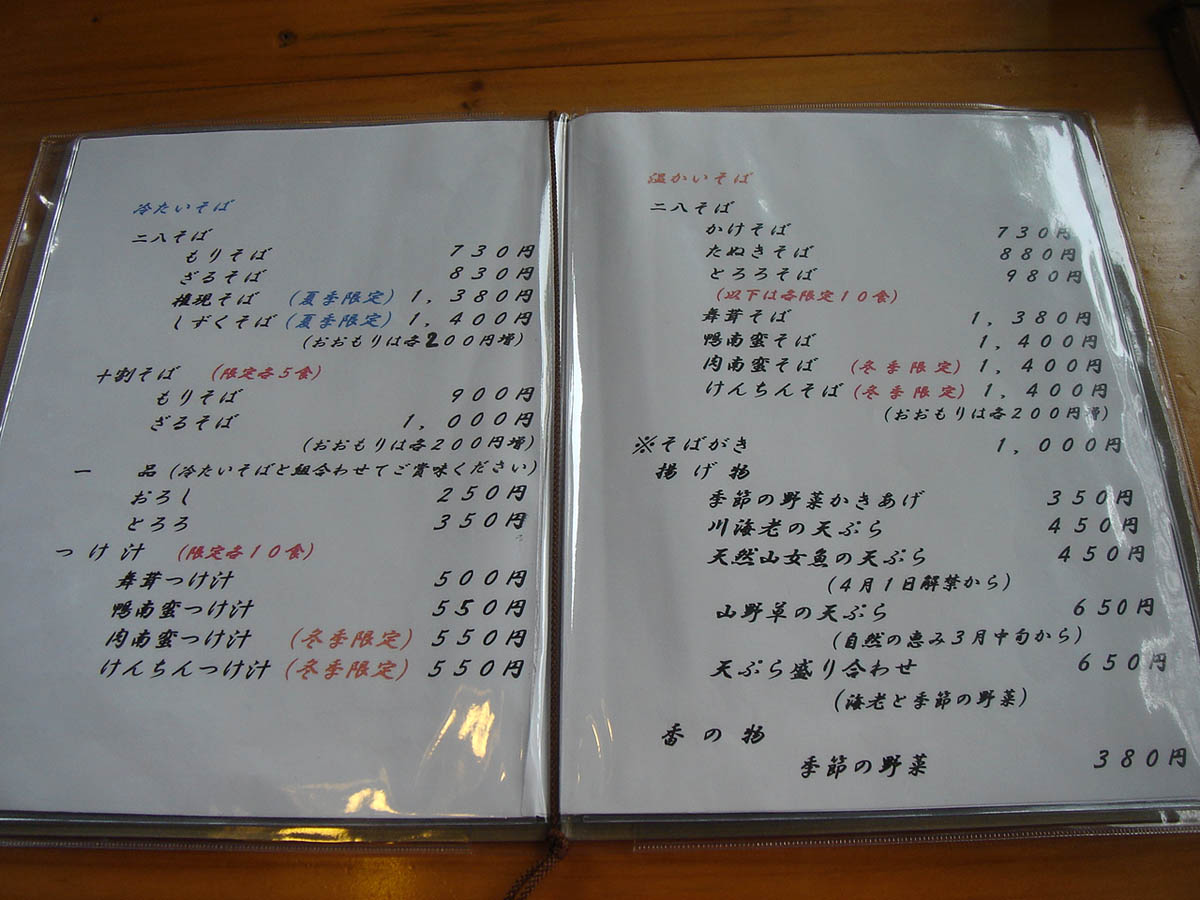 冷たいそば
二八そば
もりそば 730円
ざるそば 830円
権現そば (夏季限定) 1,380円
しずくそば (夏季限定) 1,400円
(おおもりは各200円増)
十割そば (限定各5食)
もりそば 900円
ざるそば 1,000円
(おおもりは各200円増)
一 品 (冷たいそばと組合わせてご賞味ください)
おろし 250円
とろろ 350円
つけ汁 (限定各10食)
舞茸つけ汁 500円
鴨南蛮つけ汁 550円
肉南蛮つけ汁 (冬季限定) 550円
けんちんつけ汁 (冬季限定) 550円
温かいそば
二八そば
かけそば 730円
たぬきそば 880円
とろろそば 980円
(以下は各限定10食)
舞茸そば 1,380円
鴨南蛮そば 1,400円
肉南蛮そば (冬季限定) 1,400円
けんちんそば (冬季限定) 1,400円
(おおもりは各200円増)
※そばがき 1,000円
揚げ物
季節の野菜かきあげ 350円
川海老の天ぷら 450円
天然山女魚の天ぷら 450円
(4月1日解禁から)
山野草の天ぷら 650円
(自然の恵み3月中旬から)
天ぷら盛り合わせ 650円
(海老と季節の野菜)
香の物
季節の野菜 380円